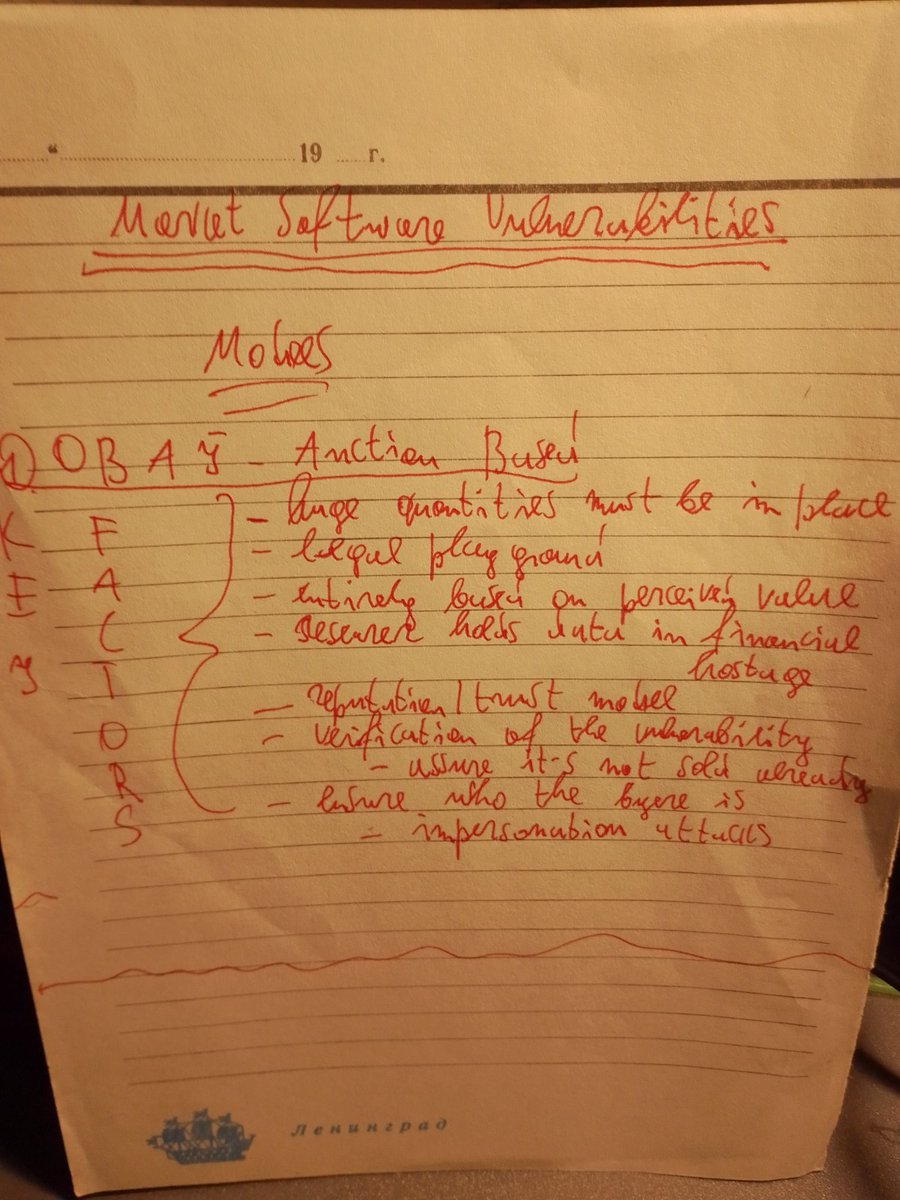 “ 19 г.
Market Software Vulnerabilities
Models
1) OBAY - Auction Based
KEY FACTORS
- huge quantities must be in place
- legal play ground
- entirely based on perceived value
- researcher holds data in financial
hostage
- reputation/trust model
- verification of the vulnerability
- assure it-s not sold already
- ensure who the byere is
- impersonation attacks
Ленинград